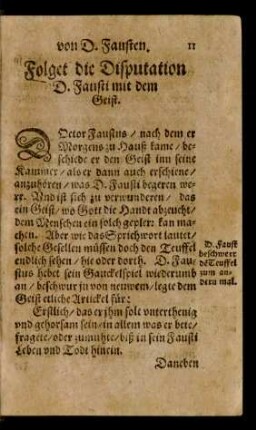 von D. Fausten. 11
Folget die Disputation
D. Fausti mit dem
Geist.
DOctor Faustus / nach dem er
Morgens zu Hauß kame / be-
schiede er den Geist inn seine
Kammer / als er dann auch erschiene /
anzuhören / was D. Fausti begeren we-
re. Vnd ist sich zu verwunderen / das
ein Geist / wo Gott die Handt abzeucht /
dem Menschen ein solch geplerr kan ma-
chen. Aber wie das Sprichwort lautet /
solche Gesellen müssen doch den Teuffel
endlich sehen / hie oder dorth. D. Fau-
stus hebet sein Gauckelspiel wiederumb
an / beschwur jn von neuwem / legte dem
Geist etliche Artickel für:
D. Faust
beschwert
dẽ Teuffel
zum an-
dern mal.
Erstlich / das er jhm solt vnterthenig
vnd gehorsam sein / in allem was er bete /
fragete / oder zumuhte / biß in sein Fausti
Leben vnd Todt hinein.
Daneben